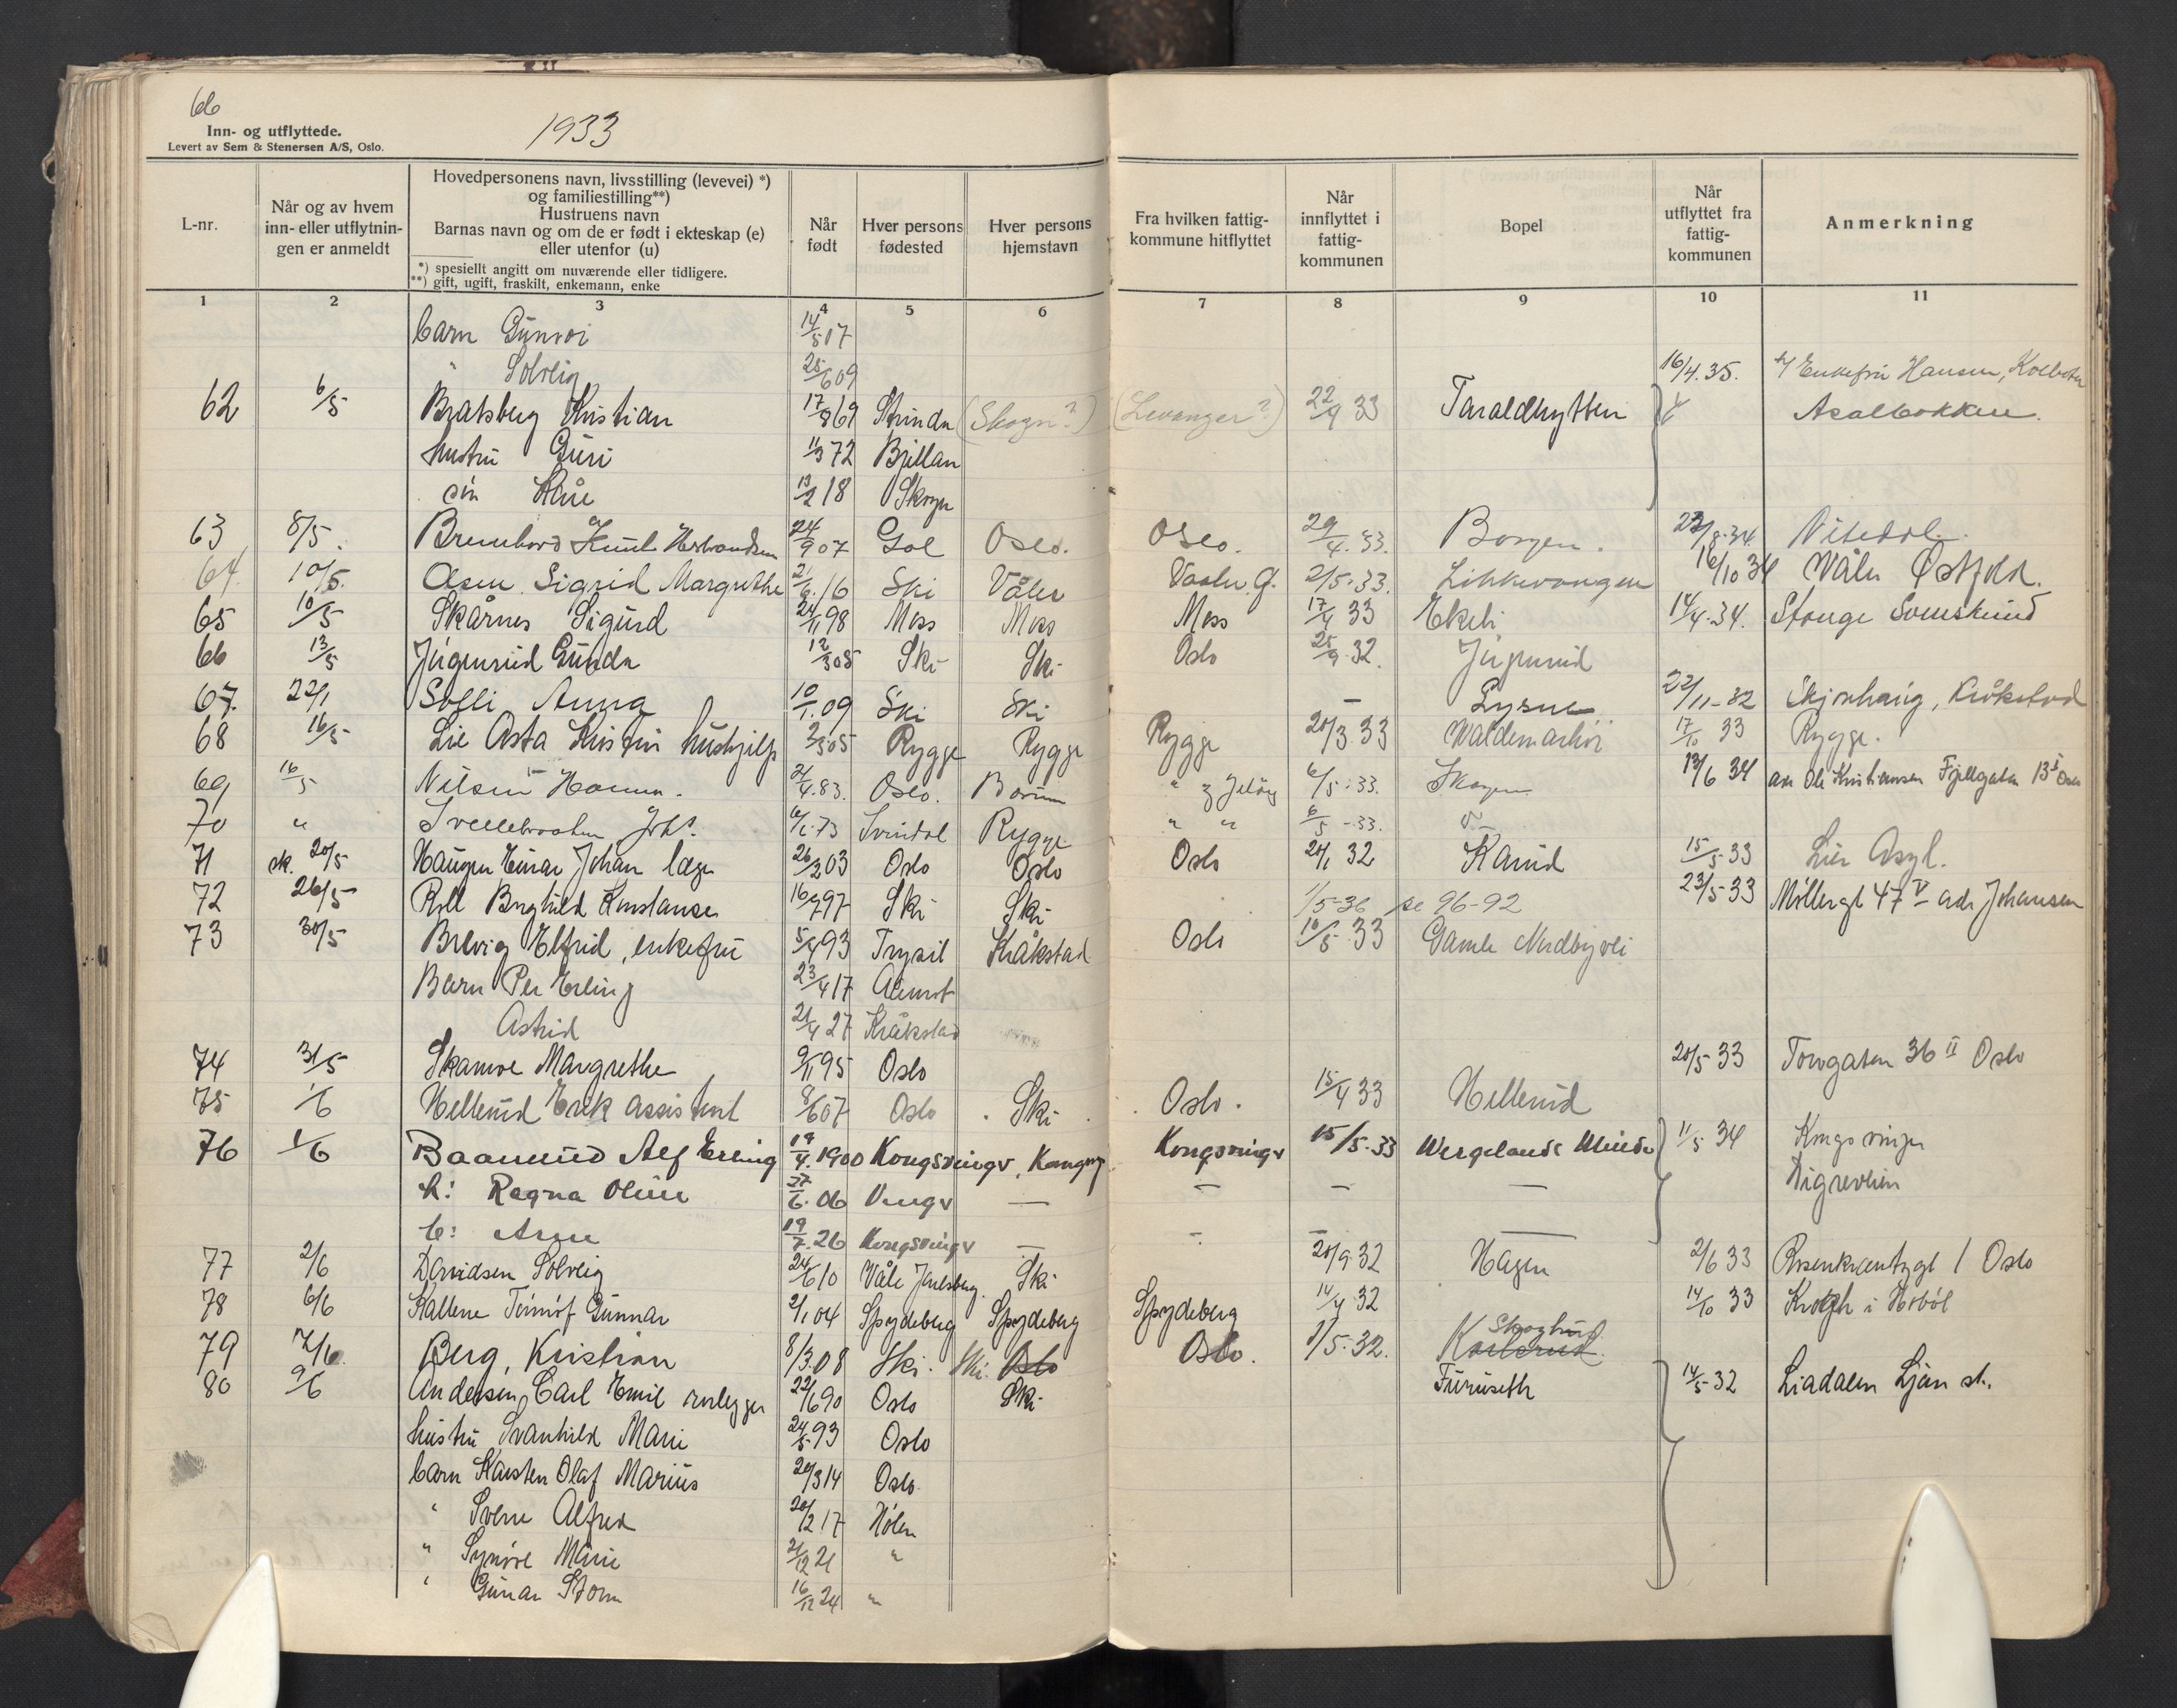 66
Inn- og utflyttede.
Levert av Sem & Stenersen A/S, Oslo.
1933
L-nr.
Når og av hvem inn- eller utflytnin-gen er anmeldt
Hovedpersonens navn, livsstilling (levevei) *)
og familiestilling**)
Hustruens navn
Barnas navn og om de er født i ekteskap (e)
eller utenfor (u)
*) spesiellt angitt om nuværende eller tidligere.
**) gift, ugift, fraskilt, enkemann, enke
Når født
Hver persons fødested
Hver persons hjemstavn
Fra hvilken fattig-kommune hitflyttet
Når innflyttet i fattig-kommunen
Bopel
Når utflyttet fra fattig-kommunen
Anmerkning
1 2 3 4 5 6 7 8 9 10 11
barn Gunvor 14/5 07
" Solveig 25/6 09 16/4.35. Enkefru Hansen, Kolbotn
62 6/5 Bratsberg Kristian 17/8 69 Strinda (Skogn?) (Levanger?) 22/9 33 Taraldhytten Asalbakken.
hustru Guri 11/3 72 Bjellan
søn Kåre 13/2 18 Skogn
63 8/5. Knut 24/9 07 Gol Oslo. Oslo. 29/4.33. Borgen. 22/8.34 Nitedal.
64. 10/5. Olsen Sigrid Margrethe 2/6.16 Ski Våler Vaaler Ø. 2/5.33. 16/10 34 Våler Østfold.
65 10/5 Skårnes Sigurd 24/1 98 Moss Moss Moss 17/4 33 Ekeli 14/4.34. Stange
66 13/5 Jugerud Gunda 12/3 05 Ski Ski Oslo 25/9.32. Jugerud
67. 22/1 Solli Anna 10/1.09 Ski Ski — Lysne 22/11-32 Skjenhaug, Kråkstad
68 16/5 Lie Asta Kristin hushjelp 2/5 05 Rygge Rygge Rygge 20/3.33 Waldemarhøi 17/10 33 Rygge.
69 16/5 Nilsen Hanna. 21/4.83. Oslo. Bærum " Jeløy 6/5.33. Skogen 13/6 34 adr Ole Kristiansen Fjellgata 13 I Oslo
70 " Johs. 6/1.73 Svindal Rygge " " 6/5-33.
71 sk. 20/5 Haugen Einar Johan læge 26/2 03 Oslo Oslo Oslo 20/1 32 15/5-33 Lier Asyl.
72 26/5 Roll Borghild Konstanse 16/7 97 Ski Ski 1/5-36 se 96-92 23/5-33 Møllergt 47 V adr Johansen
73 30/5 Brevig Elfrid, enkefru 5/4 93 Trysil Kråkstad Oslo 10/5.33 Gamle Nordbyvei
Barn Per Erling 23/4 17 Aamot
Astrid 21/4 27 Kråkstad
74 31/5 Skamoe Margrethe 9/11 95 Oslo 20/5 33 Torvgaten 36 II Oslo
75 1/6 Hellerud Erik assistent 8/6 07 Oslo . Ski Oslo. 15/4 33 Hellerud
76 1/6 Baanrud Alf Erling 19/4.1900 Kongsvinger, Kongsv Kongsvinger 15/5.33 Wergelands Minde 11/5 34 Kongsvinger
h: Ragna Oline 27/6.06 Vinger — — — — Digreveien
b: Arne 19/7.26 Kongsvinger — — — —
77 2/6 Davidsen Solveig 24/6 10 Våle Jarlsberg. Ski 20/9.32 Hagen 2/6 33 Rosenkrantzgt 1 Oslo
78 6/6 Kallene Gunnar 2/1 04 Spydeberg Spydeberg Spydeberg 14/4.32 14/10 33 i Hobøl
79 7/6. Berg, Kristian 8/3.08 Ski. Ski. Oslo Oslo. 1/5.32. Karlsrud. Skoglund
80 9/6 Andersen, Carl Emil rørlegger 22/6 90 Oslo Ski Furuseth 14/5-32 Liadalen Ljan st.
hustru Svanhild Marie 24/5 93 Oslo
barn Karsten Olaf Marius 20/3 14 Oslo
" Sverre Alfred 20/2 17 Hølen
" Synøve Marie 21/12 21 "
" Gunar Storm 16/12 24 "